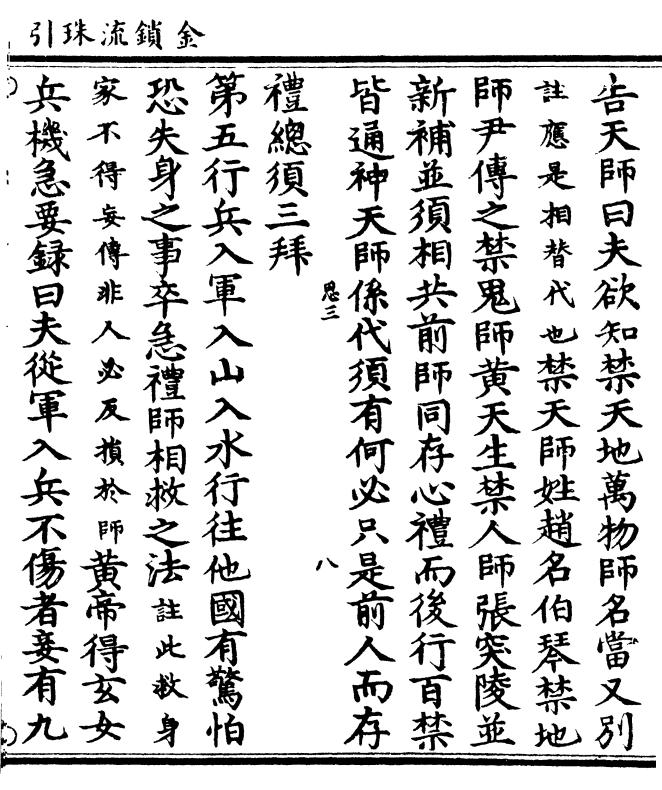 金鎖流珠引
告天師曰夫欲知禁天地萬物師名當又別
註應是相替代也禁天師姓趙名伯琴禁地
師尹傳之禁鬼師黃天生禁人師張突陵並
新補並須相共前師同存心禮而後行百禁
皆通神天師係代須有何必只是前人而存
思三
八
禮總須三拜
第五行兵入軍入山入水行往他國有驚怕
恐失身之事卒急禮師相救之法註此救身
家不得妄傳非人必反損於師黃帝得玄女
兵機急要録曰夫從軍入兵不傷者妾有九